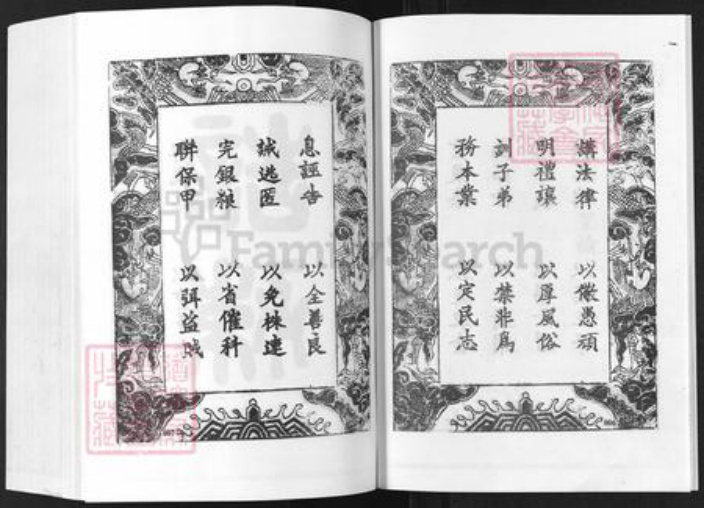 講法律 以儆愚頑
明禮讓 以厚風俗
訓子弟 以禁非為
務本業 以定民志
息誣告 以全善良
誡逃匿 以免株連
完銀粮 以省催科
聯保甲 以弭盜賊
FamilySearch